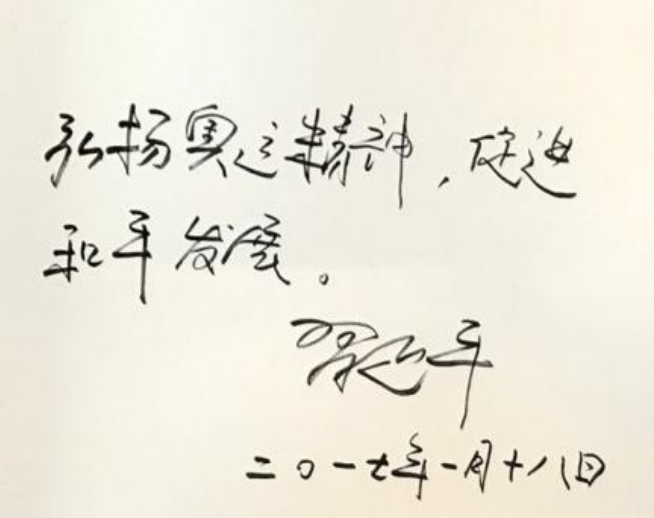 弘扬奥运精神，促进
和平发展。
习近平
二〇一七年一月十八日